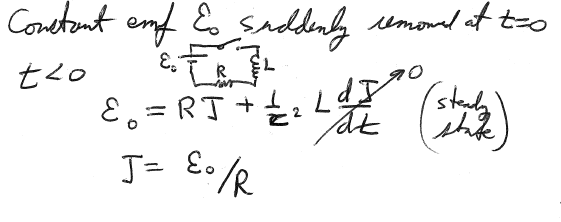 Constant emf ℰ₀ suddenly removed at t=0
t<0
ℰ₀ R L
ℰ₀ = RJ + 1/c² L dJ/dt → 0 (steady state)
J = ℰ₀/R